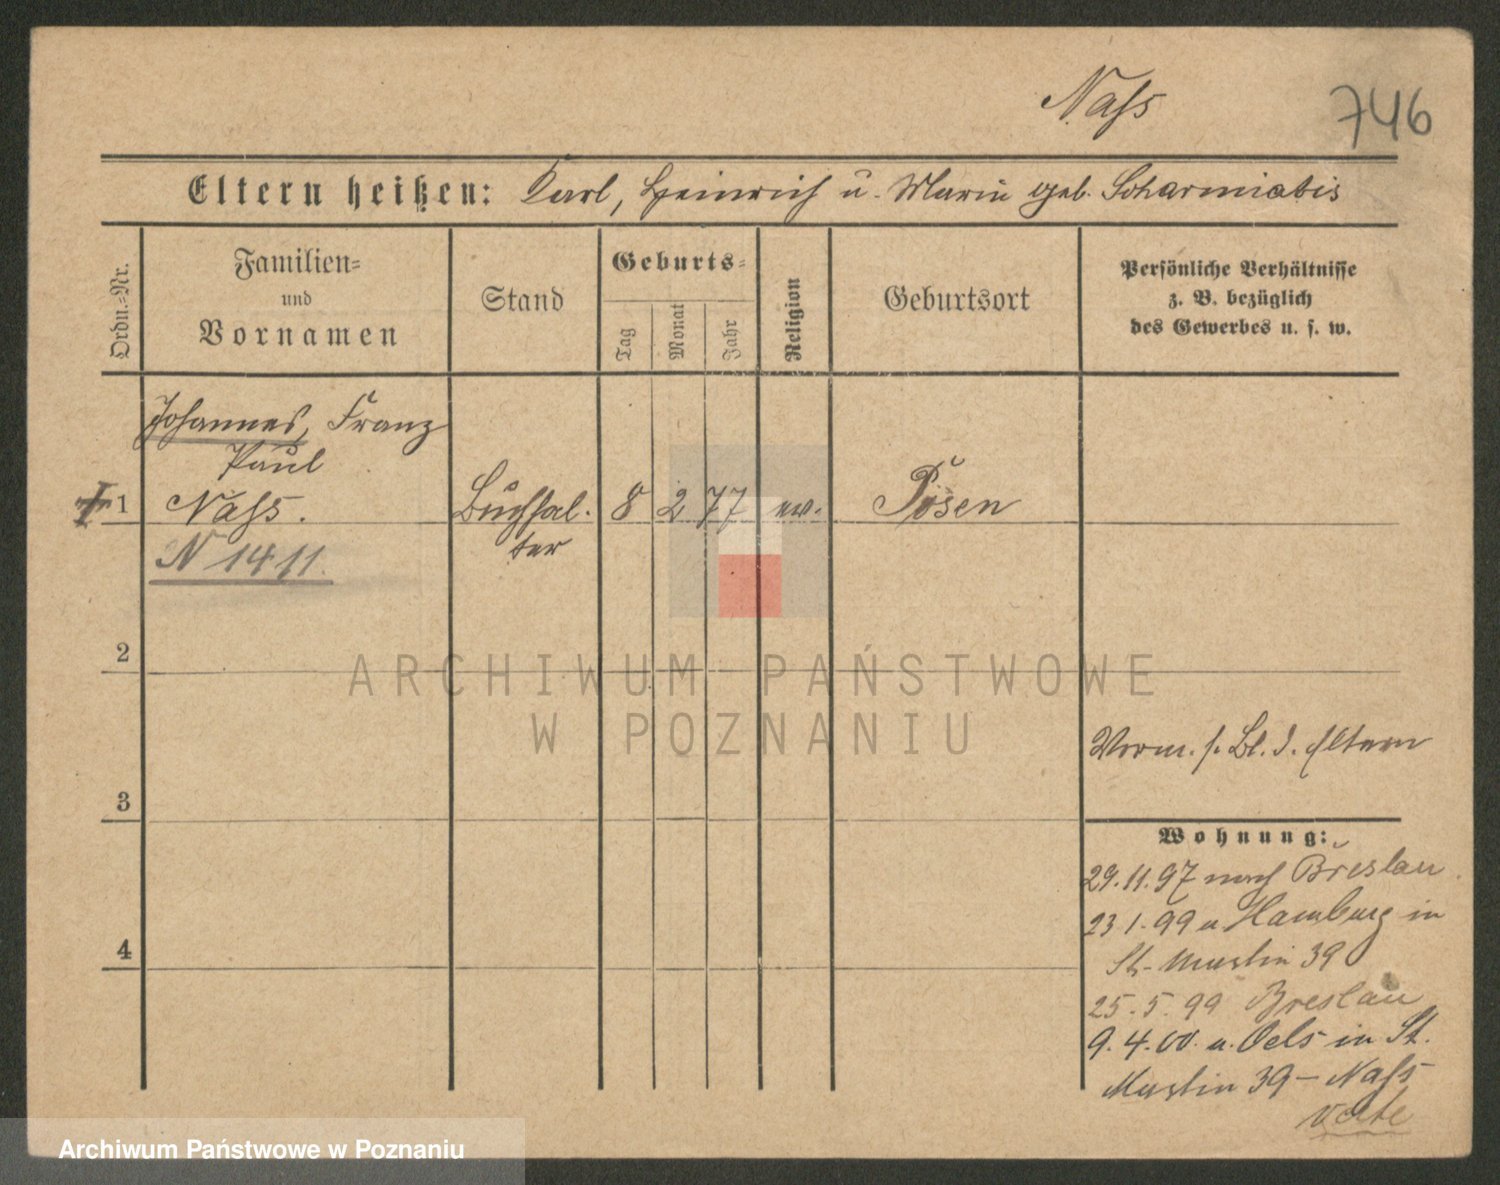 Nass
746
Eltern heißen: Karl, Heinrich u. Marie geb. Scharmiatis
Ordn.-Nr.
Familien-
und
Vornamen
Stand
Geburts-
Tag
Monat
Jahr
Religion
Geburtsort
Persönliche Verhältnisse
z. B. bezüglich
des Gewerbes u. s. w.
Johannes, Franz
Paul
1 Nass. Buchhal- 8 2 77 ev. Posen
ter
N 1411
2
ARCHIWUM PAŃSTWOWE
W POZNANIU
Verm. s. Bl. d. Eltern
3
Wohnung:
29.11.97 nach Breslau
23.1.99 a Hamburg in
St. Martin 39
4
25.5.99 Breslau
9.4.00. a. Oels in St.
Martin 39 – Nass
Archiwum Państwowe w Poznaniu